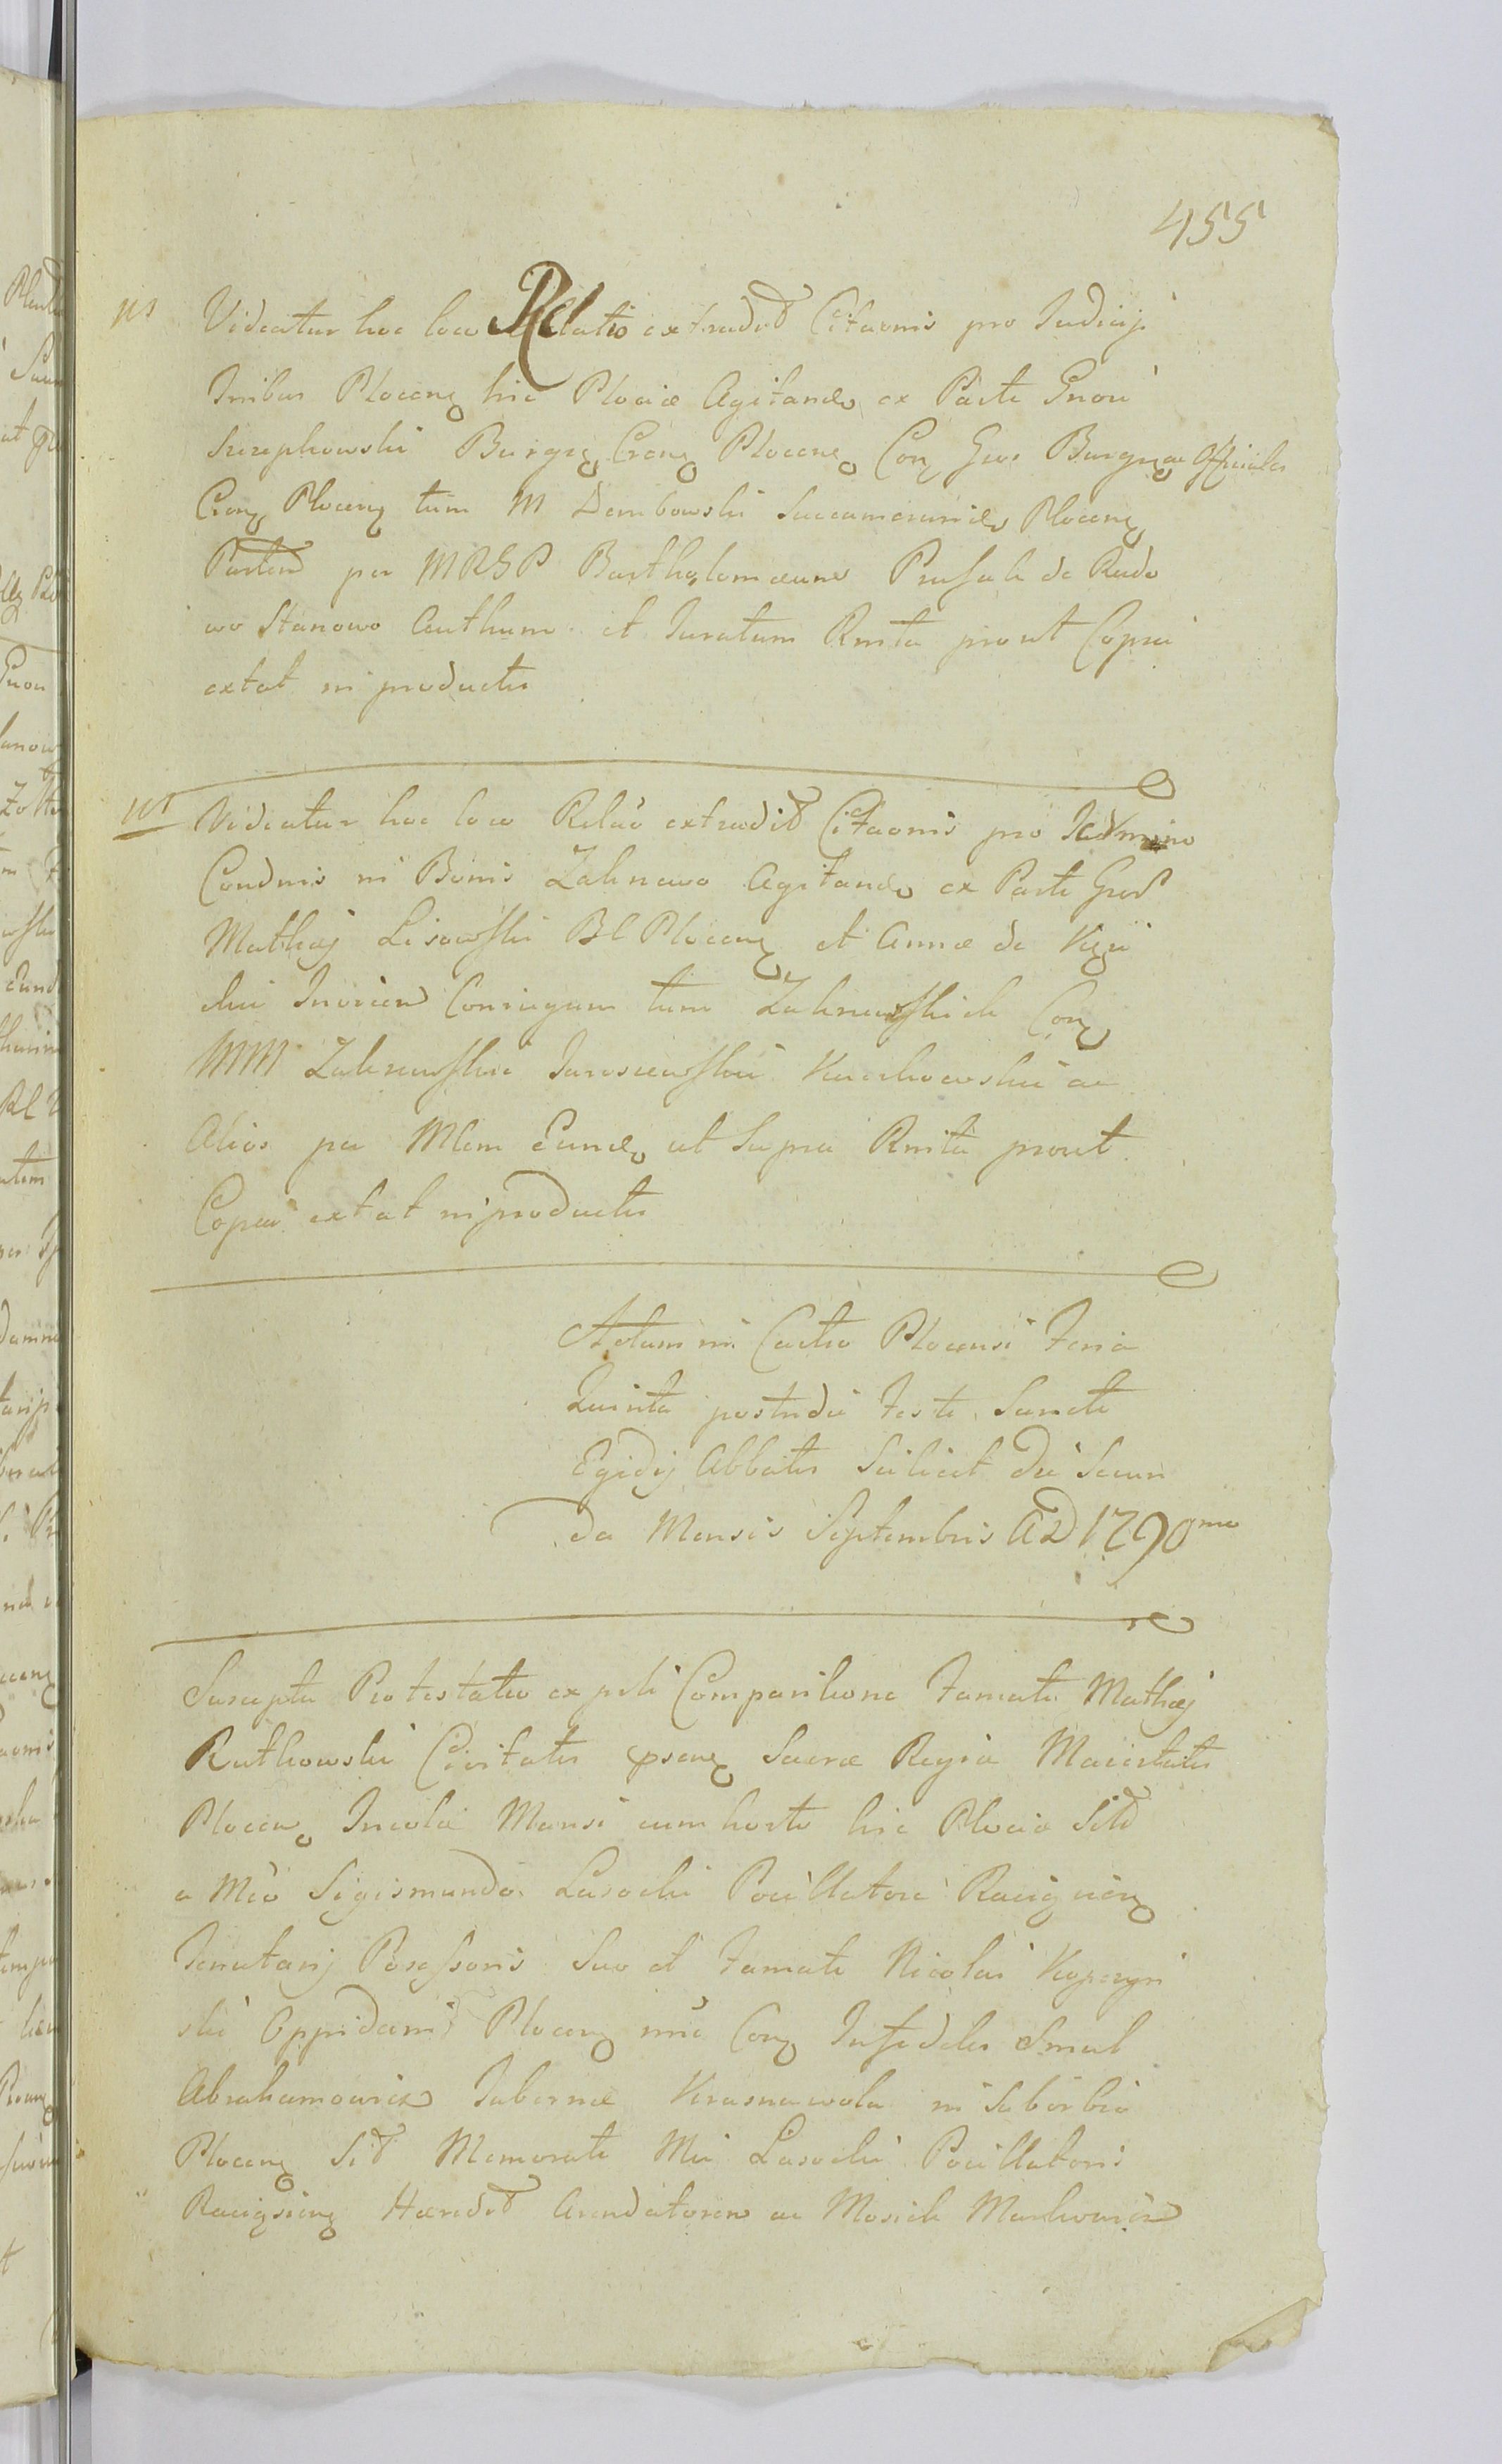 455
Videatur hoc loco Relatio extradit Citaonis pro Iudicij
Inibus Plocens hic Plociæ Agitando ex Parte Gnosi
Szczepkowski Burgs Crens Plocens Con Gnos Burgs ac Officiales
Crens Plocens tum M Dembowski Succamerarides Plocens
Parten per MRSP Bartholomeum Prusak de Rado
wo Stanowo Authum et Juratum Rnita prout Copia
extat in productis
Videatur hoc loco Relao extradit Citaonis pro Termino
Condnis in Bonis Zakrzewo Agitando ex Parte Gnor
Mathæj Lisowski BC Plocens et Annæ de
Invicem Coniugum tum Zakrzewskich Con
MM Zakrzewskie Jaroszewskii Kuczkowskii ac
Alios per Mlem Eundo ut Supra Rnita prout
Copia extat in productis
Actum in Castro Plocensi Feria
Quinta postridie Festi Sancti
Egidij Abbatis Scilicet die Secun
da Mensis Septembris AD 1790mo
Suscepta Protestatio ex psli Comparitione Famati Mathæj
Rutkowski Civitatis pseng Sacræ Regiæ Maiestatis
Plocens Incolæ Mansi cum horto hic Plociæ Sitd
a Mco Sigismundo Lasocki Pocillatore Raciąscień
Tenutarij Possessoris Suo et Famati Nicolai Kopczyn
ski Oppidani Plocens nnie Con Infideles Smul
Abrahamowicz Tabernæ Krasnawola in Suburbio
Plocens Sit Memorati Mci Lasocki Pocillatoris
Raciąsień Haredit Arendatorem ac Mosiek Markowicz